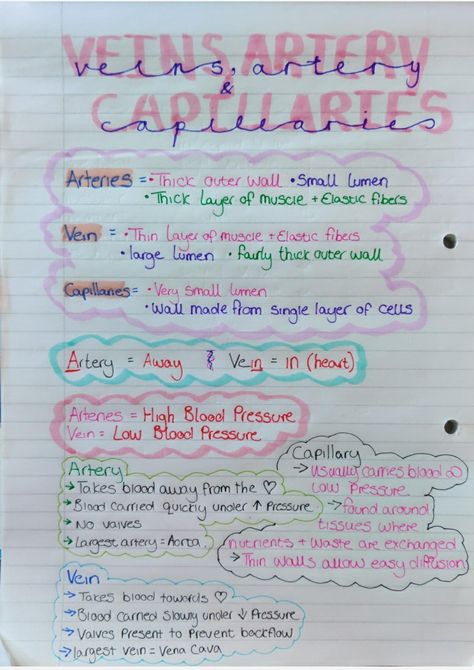 VEINS, ARTERY
veins, artery
&
CAPILLARIES
capillaries
Arteries = • Thick outer wall • Small lumen
• Thick layer of muscle + Elastic fibers
Vein = • Thin layer of muscle + Elastic fibers
• large lumen • Fairly thick outer wall
Capillaries = • Very small lumen
• Wall made from single layer of cells
Artery = Away & Vein = in (heart)
Arteries = High Blood Pressure
Vein = Low Blood Pressure
Artery
→ Takes blood away from the ♡
→ Blood carried quickly under ↑ Pressure
→ No valves
→ Largest artery = Aorta.
Capillary
→ usually carries blood @
Low Pressure
→ found around
tissues where
nutrients + waste are exchanged
→ Thin walls allow easy diffusion
Vein
→ Takes blood towards ♡
→ Blood carried slowly under ↓ Pressure
→ Valves Present to Prevent backflow
→ largest vein = Vena Cava